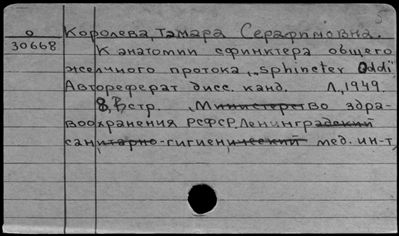 5
о Королева, Тамара Серафимовна.
30668 К анатомии сфинктера общего
желчного протока „sphincter Oddi"
Автореферат дисс. канд. Л., 1949.
8, стр. Министерство здра-
воохранения РСФСР. Ленинградский
санитарно-гигиенический мед. ин-т,